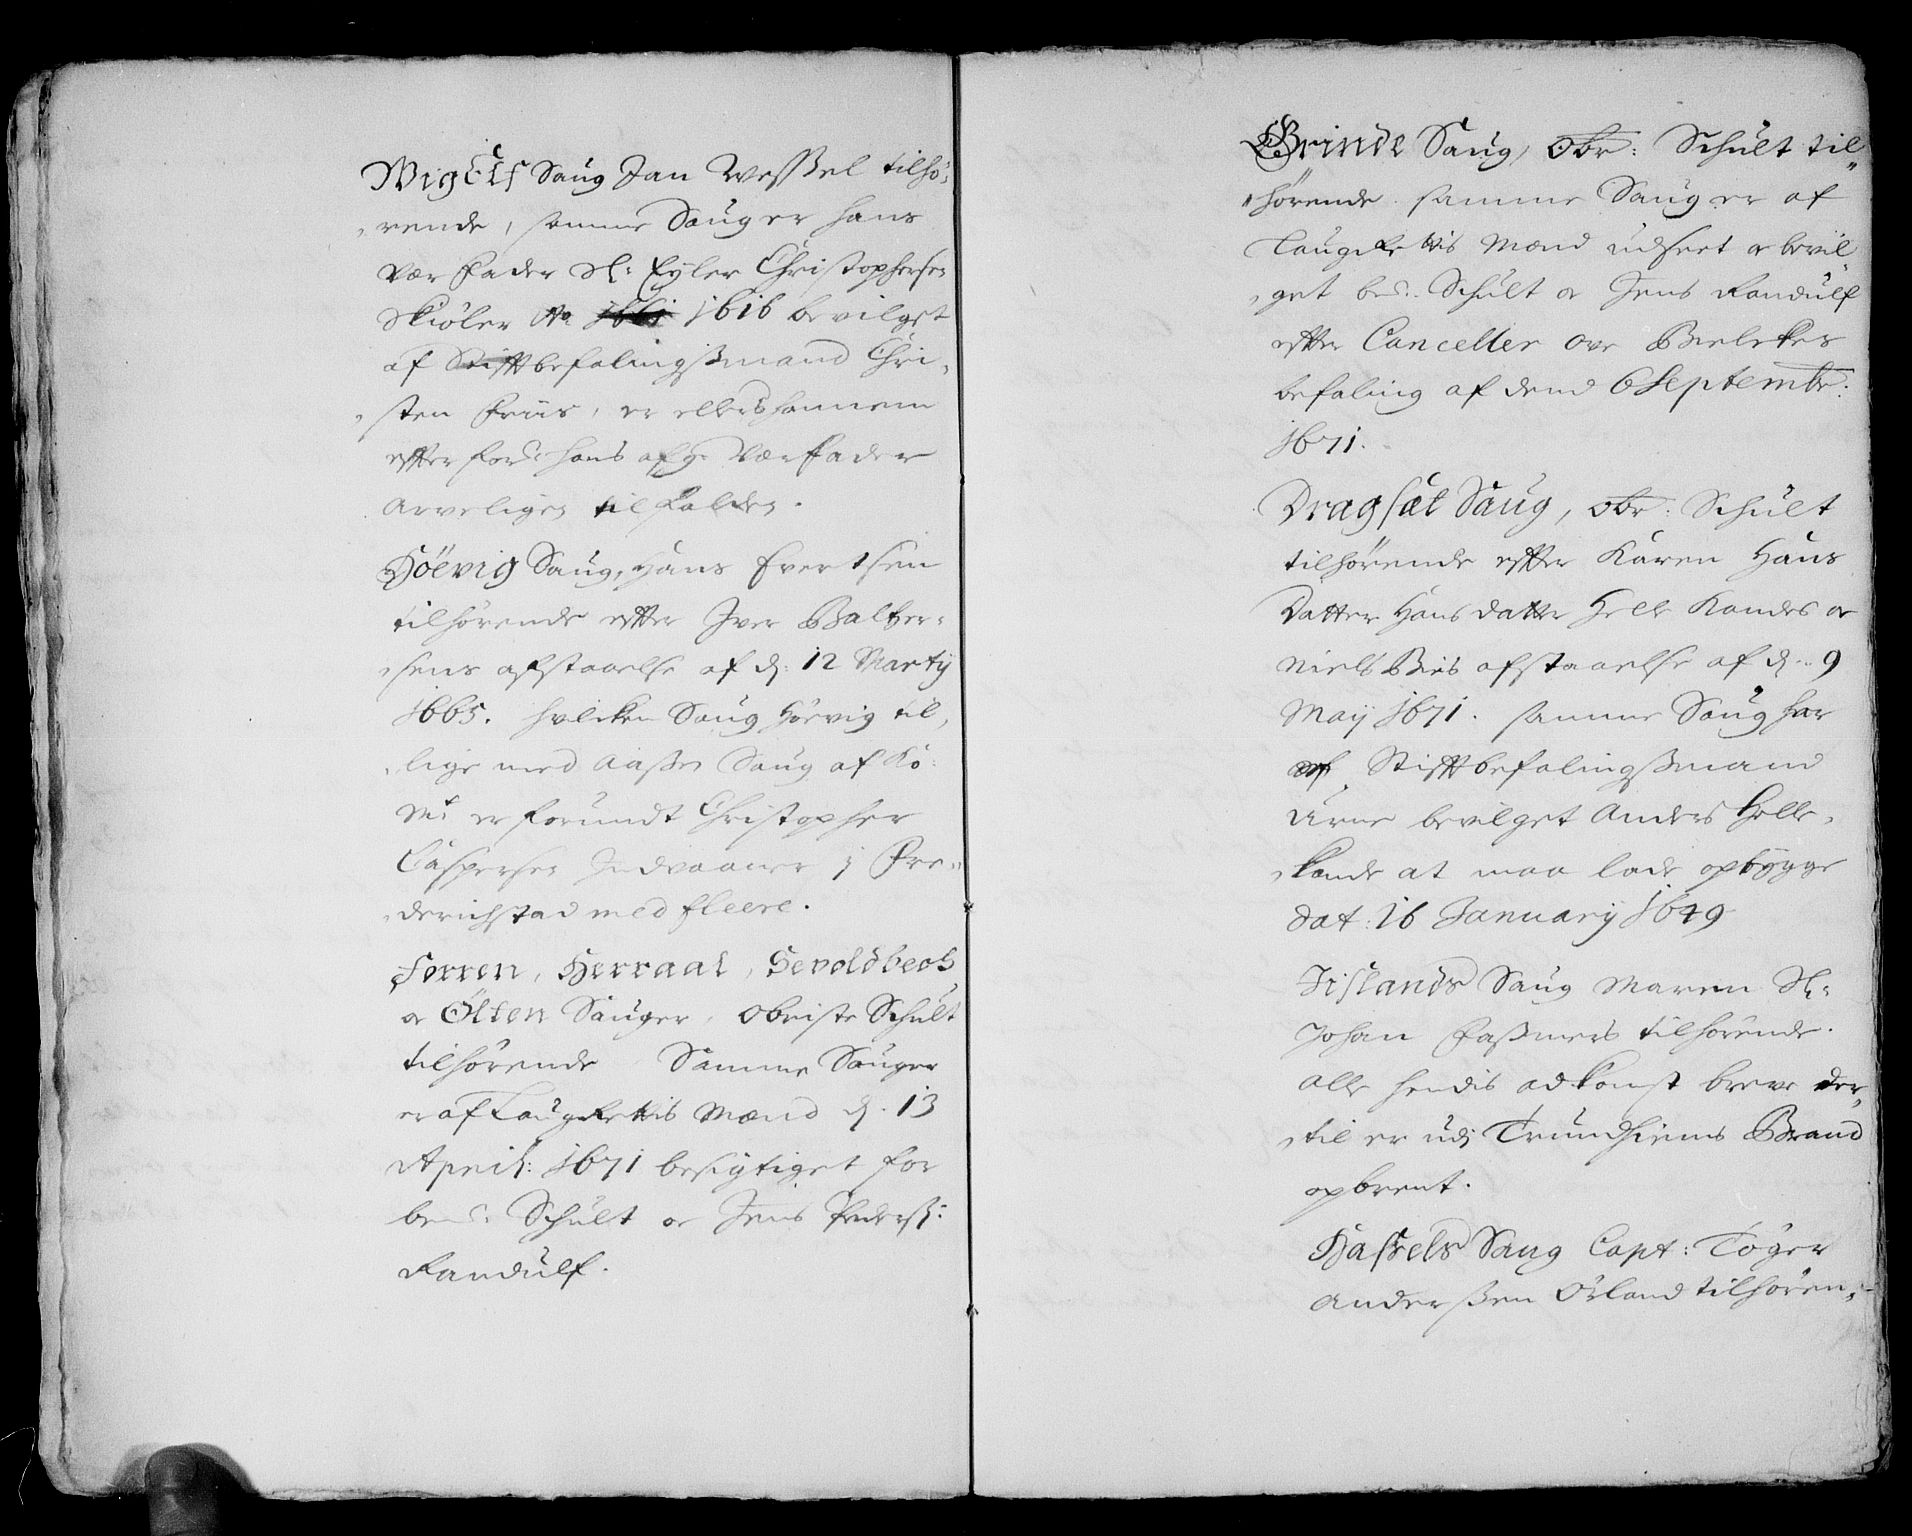 Wigels Saug Jan Wessel tilhø-
rende, samme Saug er hans
Vær fader Sl: Eyler Christophersen
Skiøler Ao 1616 bevilget
af Stifftbefalingsmand Chri-
sten Friis, er ellers hannem
effter for: hans afg: Værfader
Arveligen tilfalden.
Höevig Saug, Hans Evertsen
tilhørende effter Iver Baltzer-
sens afstaaelse af d: 12 Martij
1665. hvilcken Saug Höevig til-
lige med Aassen Saug af Ko:
Mt er forundt Christopher
Caspersen Indvaaner j Fre-
derichstad med fleere.
Forren, Herraal, Sevoldbech
oc Ölten Sauger, Obriste Schult
tilhørende Samme Sauger
er af Laugrettis Mænd d. 13
April: 1671 besigtiget for
bem: Schult oc Jens Pederss:
Randulf.
Grinde Saug, Obr: Schult til-
hørende. samme Saug er af
Laugrettis Mænd udseet oc bevil-
get bem: Schult oc Jens Randulf
effter Canceller Ove Bielckes
befaling af dend 6 Septembr:
1671.
Dragsæt Saug, Obr: Schult
tilhørende effter Karen Hans
Datter Hans datter Helle Kandes oc
Niels Bies afstaaelse af d. 9
Maij 1671. samme Saug har
af Stifftbefalingsmand
Urne bevilget Anders Helle-
kande at maa lade opbygge
dat: 16 January 1649
Iislands Saug Maren Sl:
Johan Fasmers tilhørende.
alle hendis adkomst breve der-
til er udj Trundhiems Brand
opbrent.
Hassels Saug Capt: Tøger
Anderssen Örland tilhøren-